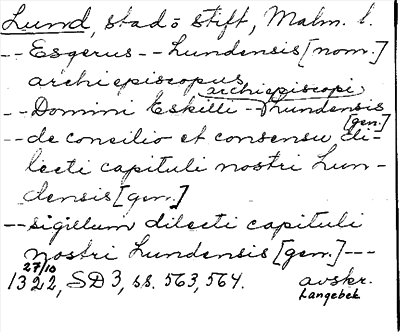 Lund, stad o stift, Malm. l.
-- Esgerus -- Lundensis [nom.]
archiepiscopus
archiepiscopi
-- Domini Eskilli -- Lundensis
[gen.]
-- de consilio et consensu di-
lecti capituli nostri Lun-
densis [gen.]
-- sigillum dilecti capituli
nostri Lundensis [gen.] ---
27/10
1322, SD 3, ss. 563, 564. avskr.
Langebek